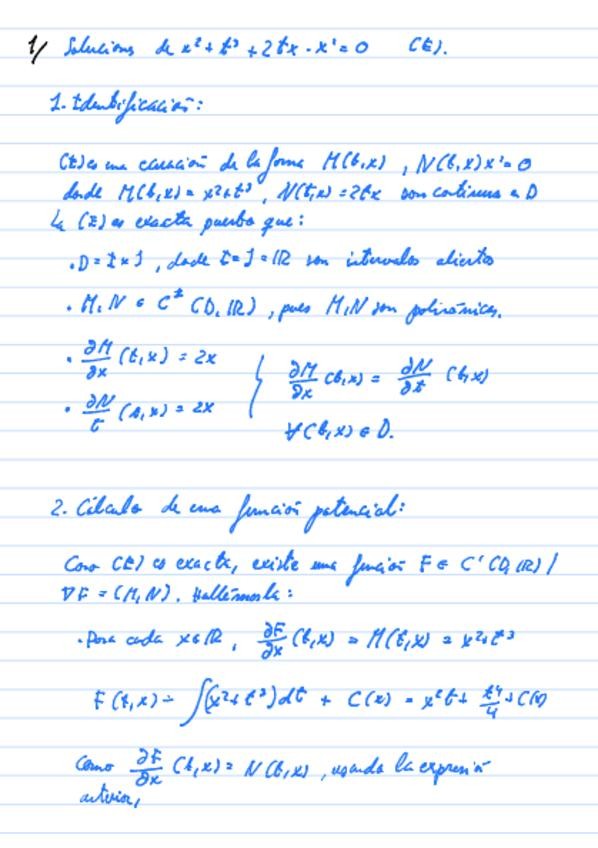 1/ Soluciones de x² + t³ + 2tx · x' = 0 (E).
1. Identificación:
(E) es una ecuación de la forma M(t,x) + N(t,x) x' = 0
donde M(t,x) = x² + t³, N(t,x) = 2tx son continuas en D
La (E) es exacta puesto que:
· D = I × J, donde I = J = ℝ son intervalos abiertos
· M, N ∈ C¹ (D, ℝ), pues M, N son polinómicas.
· ∂M/∂x (t,x) = 2x
· ∂N/t (t,x) = 2x
∂M/∂x (t,x) = ∂N/∂t (t,x)
∀(t,x) ∈ D.
2. Cálculo de una función potencial:
Como (E) es exacta, existe una función F ∈ C'(D, ℝ) /
∇F = (M, N). Hallémosla:
· Para cada x ∈ ℝ, ∂F/∂x (t,x) = M(t,x) = x² + t³
F(t,x) = ∫(x² + t³) dt + C(x) = x²t + t⁴/4 + C(x)
Como ∂F/∂x (t,x) = N(t,x), usando la expresión
anterior,